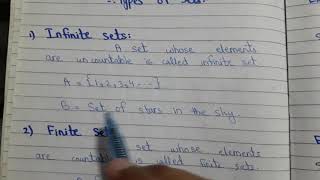 Types of Sets:
1) Infinite sets:
A set whose elements
are uncountable is called infinite set
A = {1,2,3,4 ...}
B = Set of stars in the sky.
2) Finite set
set whose elements
are countable is called finite sets.